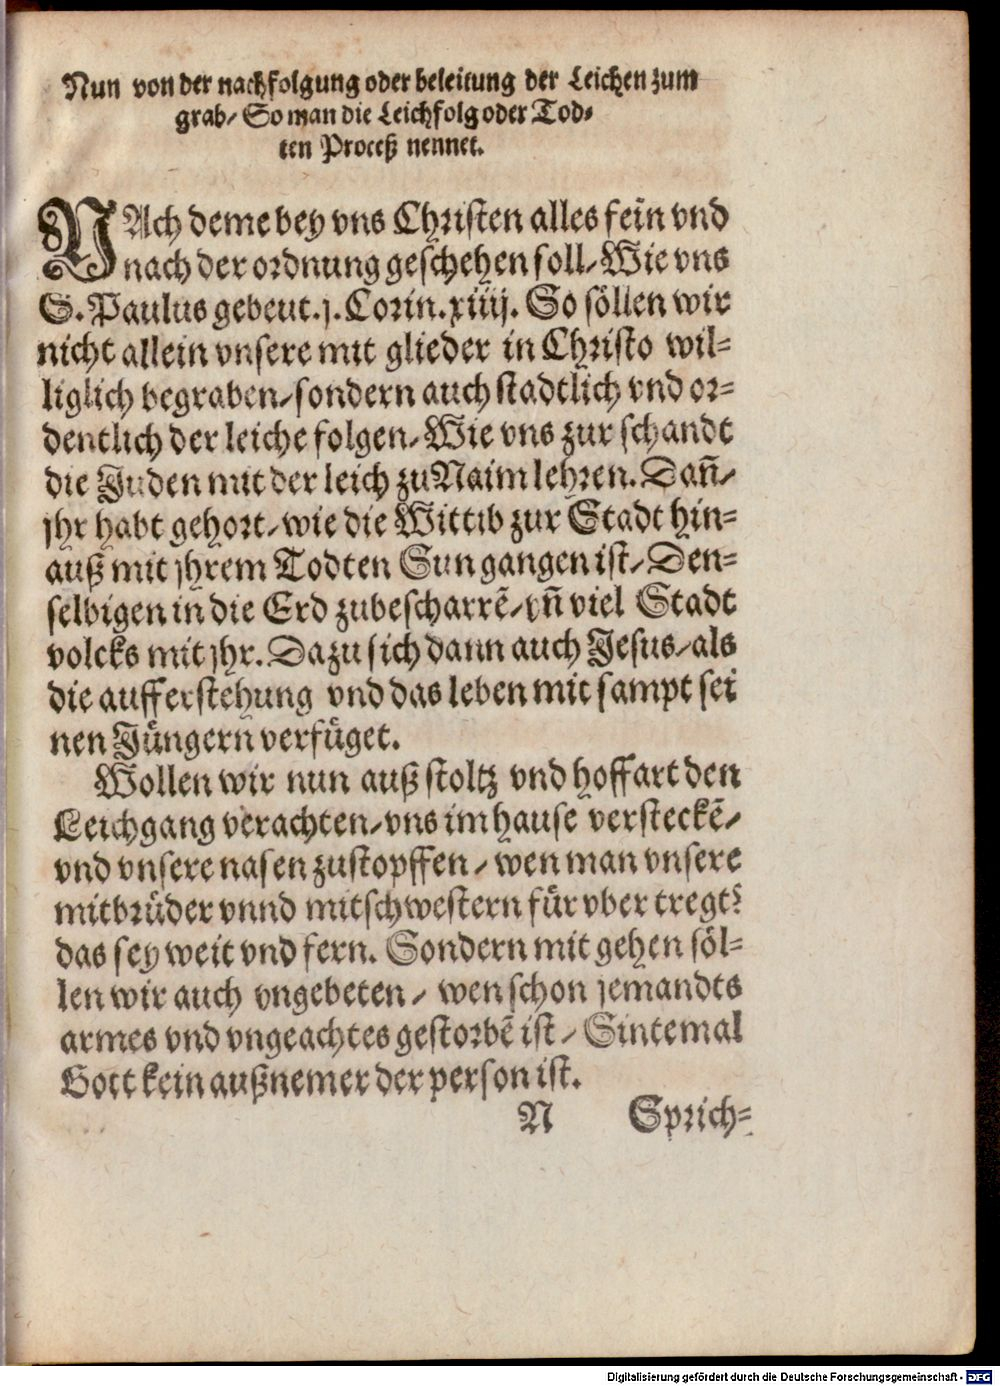 Nun von der nachfolgung oder beleitung der Leichen zum
grab/ So man die Leichfolg oder Tod-
ten Proceß nennet.
NAch deme bey vns Christen alles fein vnd
nach der ordnung geschehen soll/ Wie vns
S. Paulus gebeut. j. Corin. xiiij. So söllen wir
nicht allein vnsere mit glieder in Christo wil-
liglich begraben/ sondern auch stadtlich vnd or-
dentlich der leiche folgen/ Wie vns zur schandt
die Juden mit der leich zu Naim lehren. Dañ/
jhr habt gehort/ wie die Wittib zur Stadt hin-
auß mit jhrem Todten Sun gangen ist/ Den-
selbigen in die Erd zubescharrẽ/ vñ viel Stadt
volcks mit jhr. Dazu sich dann auch Jesus/ als
die aufferstehung vnd das leben mit sampt sei
nen Jüngern verfüget.
Wollen wir nun auß stoltz vnd hoffart den
Leichgang verachten/ vns im hause versteckẽ/
vnd vnsere nasen zustopffen/ wen man vnsere
mitbrüder vnnd mitschwestern für vber tregt?
das sey weit vnd fern. Sondern mit gehen söl-
len wir auch vngebeten/ wen schon jemandts
armes vnd vngeachtes gestorbẽ ist/ Sintemal
Gott kein außnemer der person ist.
N Sprich-
Digitalisierung gefördert durch die Deutsche Forschungsgemeinschaft - DFG